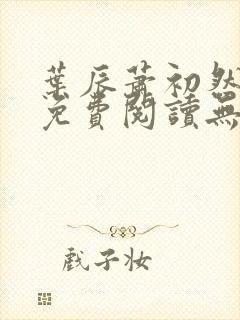 葉辰蕭初然
免費閱讀無
戲子妝